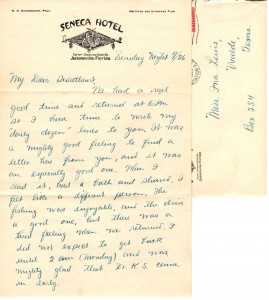 SENECA HOTEL
Jacksonville, Florida
Sunday Night 7/26
My Dear Sweetheart,
We had a real
good time and returned at 6 PM
so I have time to write my
"daily dozen" lines to you. It was
a mighty good feeling to find a
letter here from you, and it was
an especially good one. When I
read it, had a bath and shaved, I
felt like a different person. The
feeling was enjoyable, and the drive
a good one, but there was a
tired feeling when we returned. I
did not expect to get back
until 2 am (Monday) and was
mighty glad that Dr. K.S. came
in early.
Miss Ina Lewis,
Uvalde,
Texas
Box 284